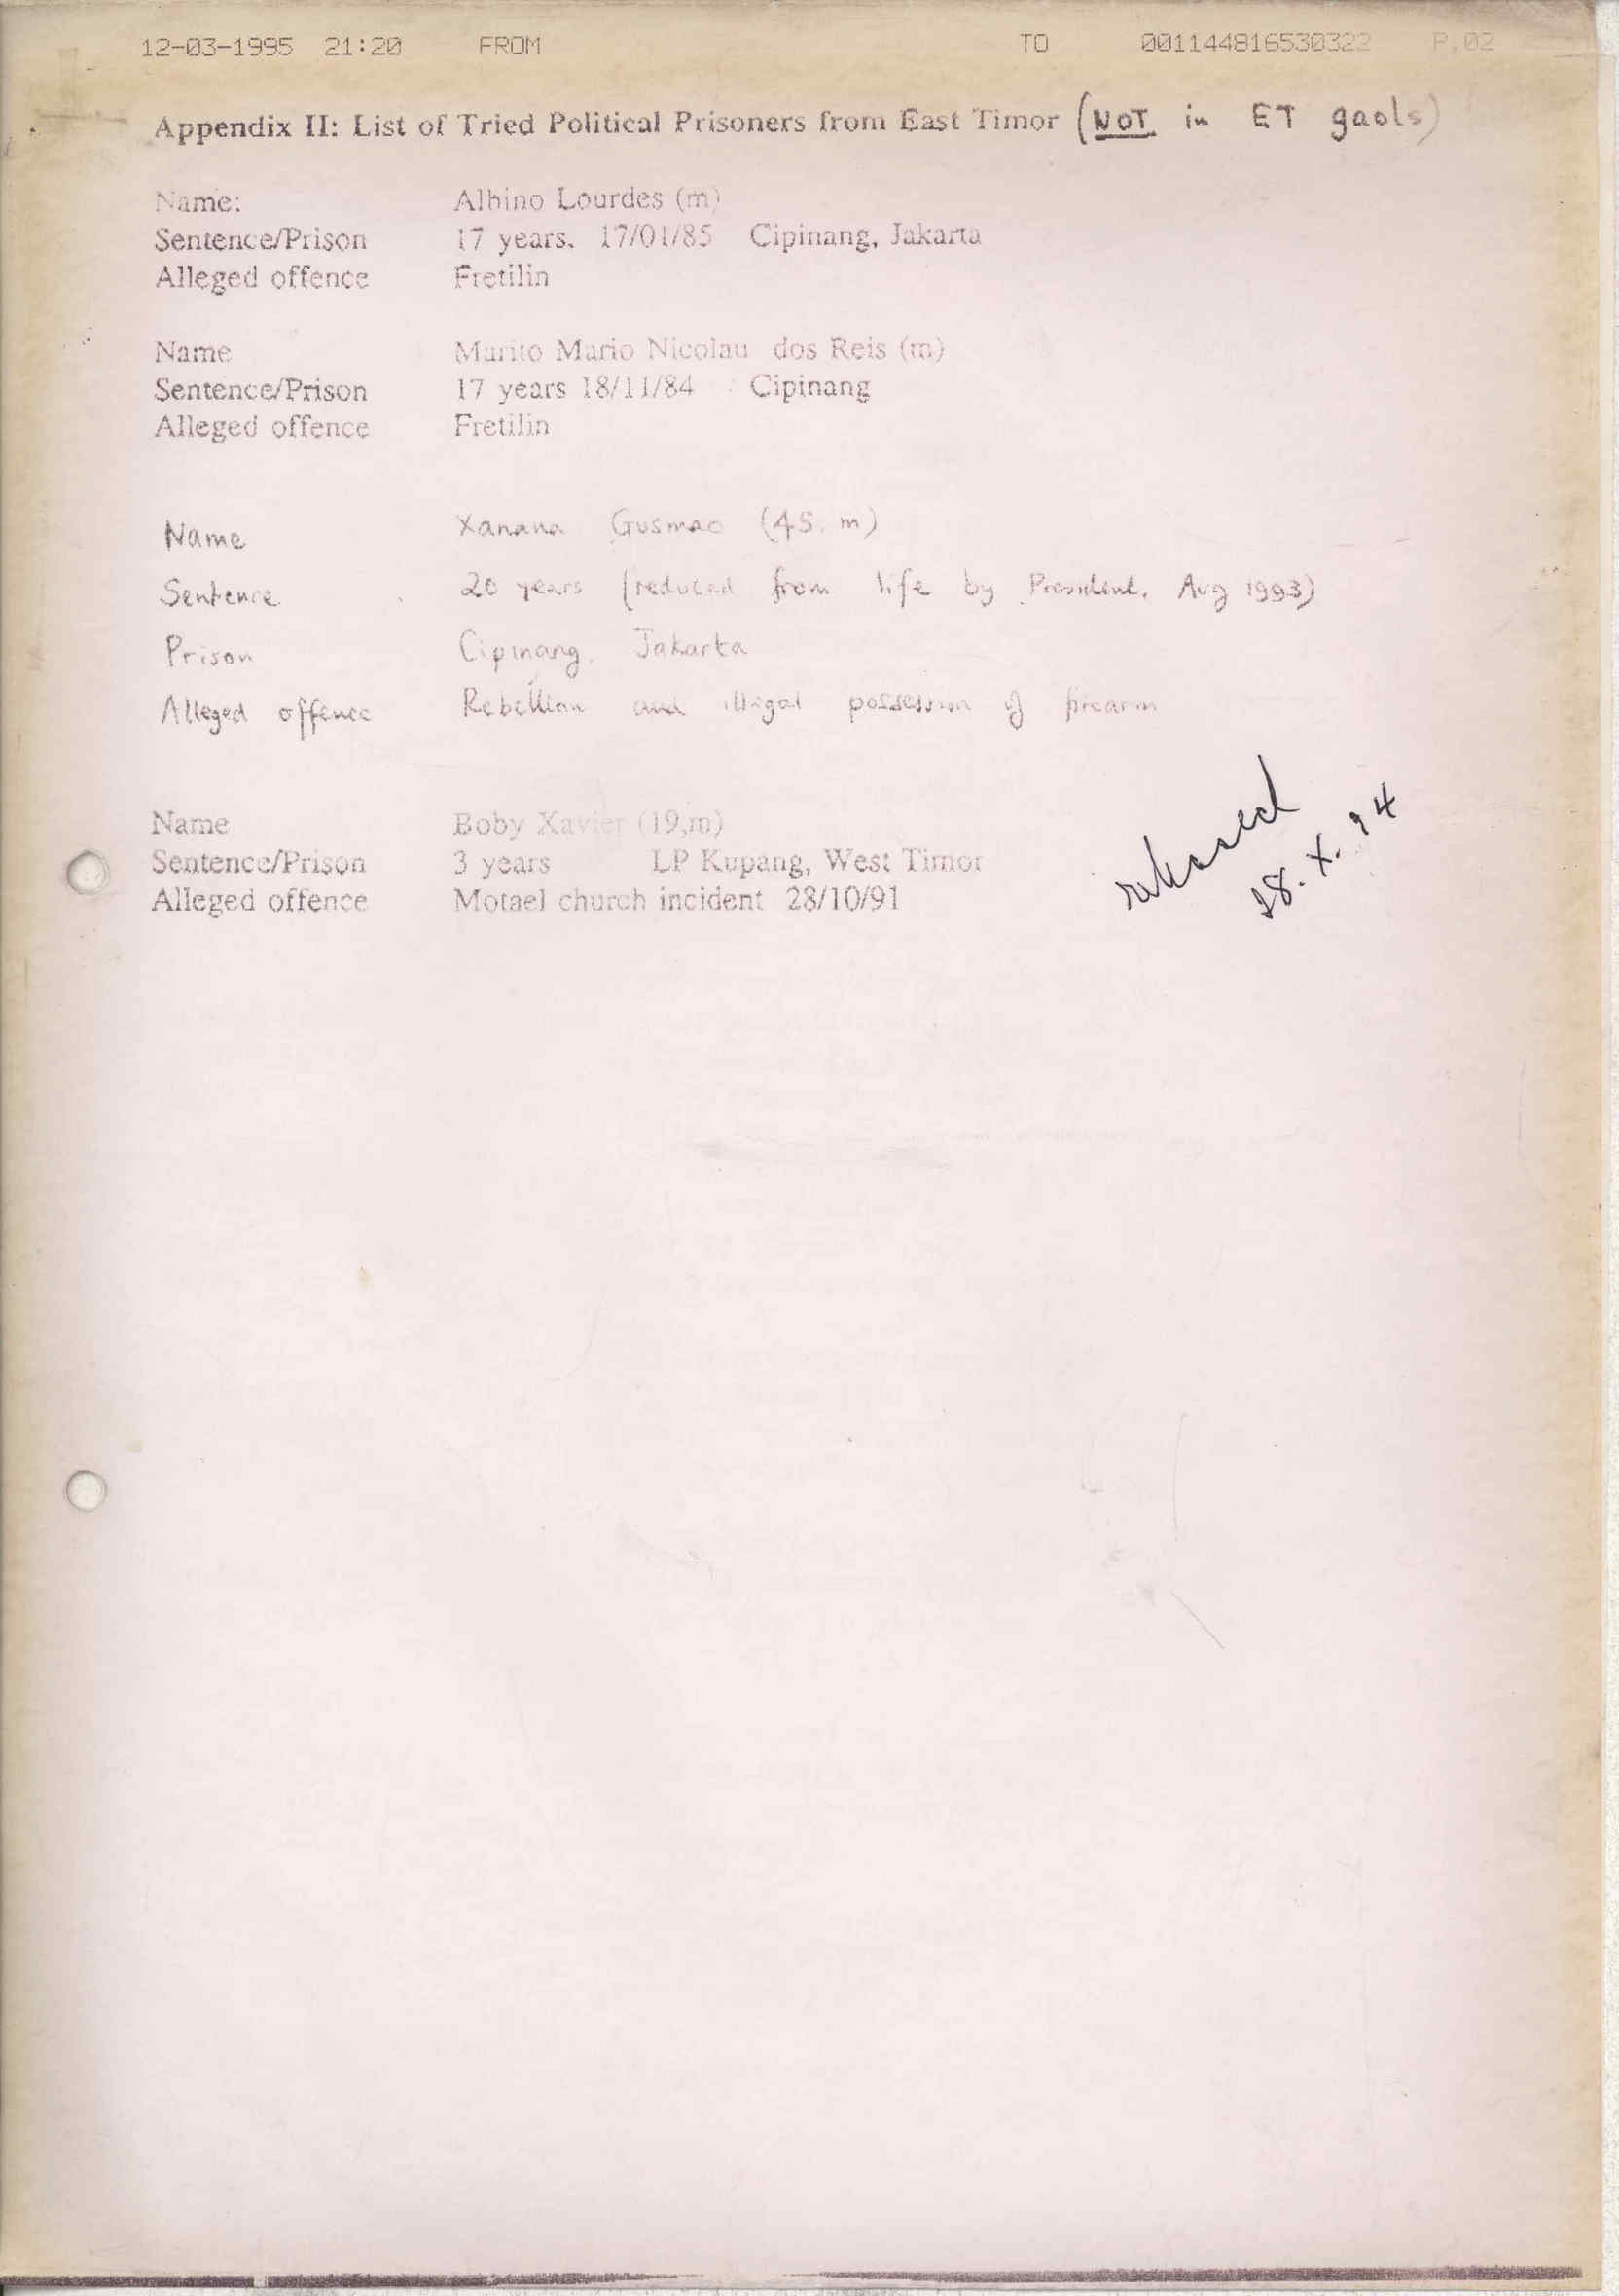 12-03-1995 21:20 FROM TO 001144816530322 P.02
Appendix II: List of Tried Political Prisoners from East Timor (NOT in ET gaols)
Name: Albino Lourdes (m)
Sentence/Prison 17 years. 17/01/85 Cipinang, Jakarta
Alleged offence Fretilin
Name Marito Mario Nicolau dos Reis (m)
Sentence/Prison 17 years 18/11/84 Cipinang
Alleged offence Fretilin
Name Xanana Gusmao (45. m)
Sentence 20 years (reduced from life by President, Aug 1993)
Prison Cipinang, Jakarta
Alleged offence Rebellion and illegal possession of firearm
Name Boby Xavier (19,m)
Sentence/Prison 3 years LP Kupang, West Timor
Alleged offence Motael church incident 28/10/91
released
28.X.94